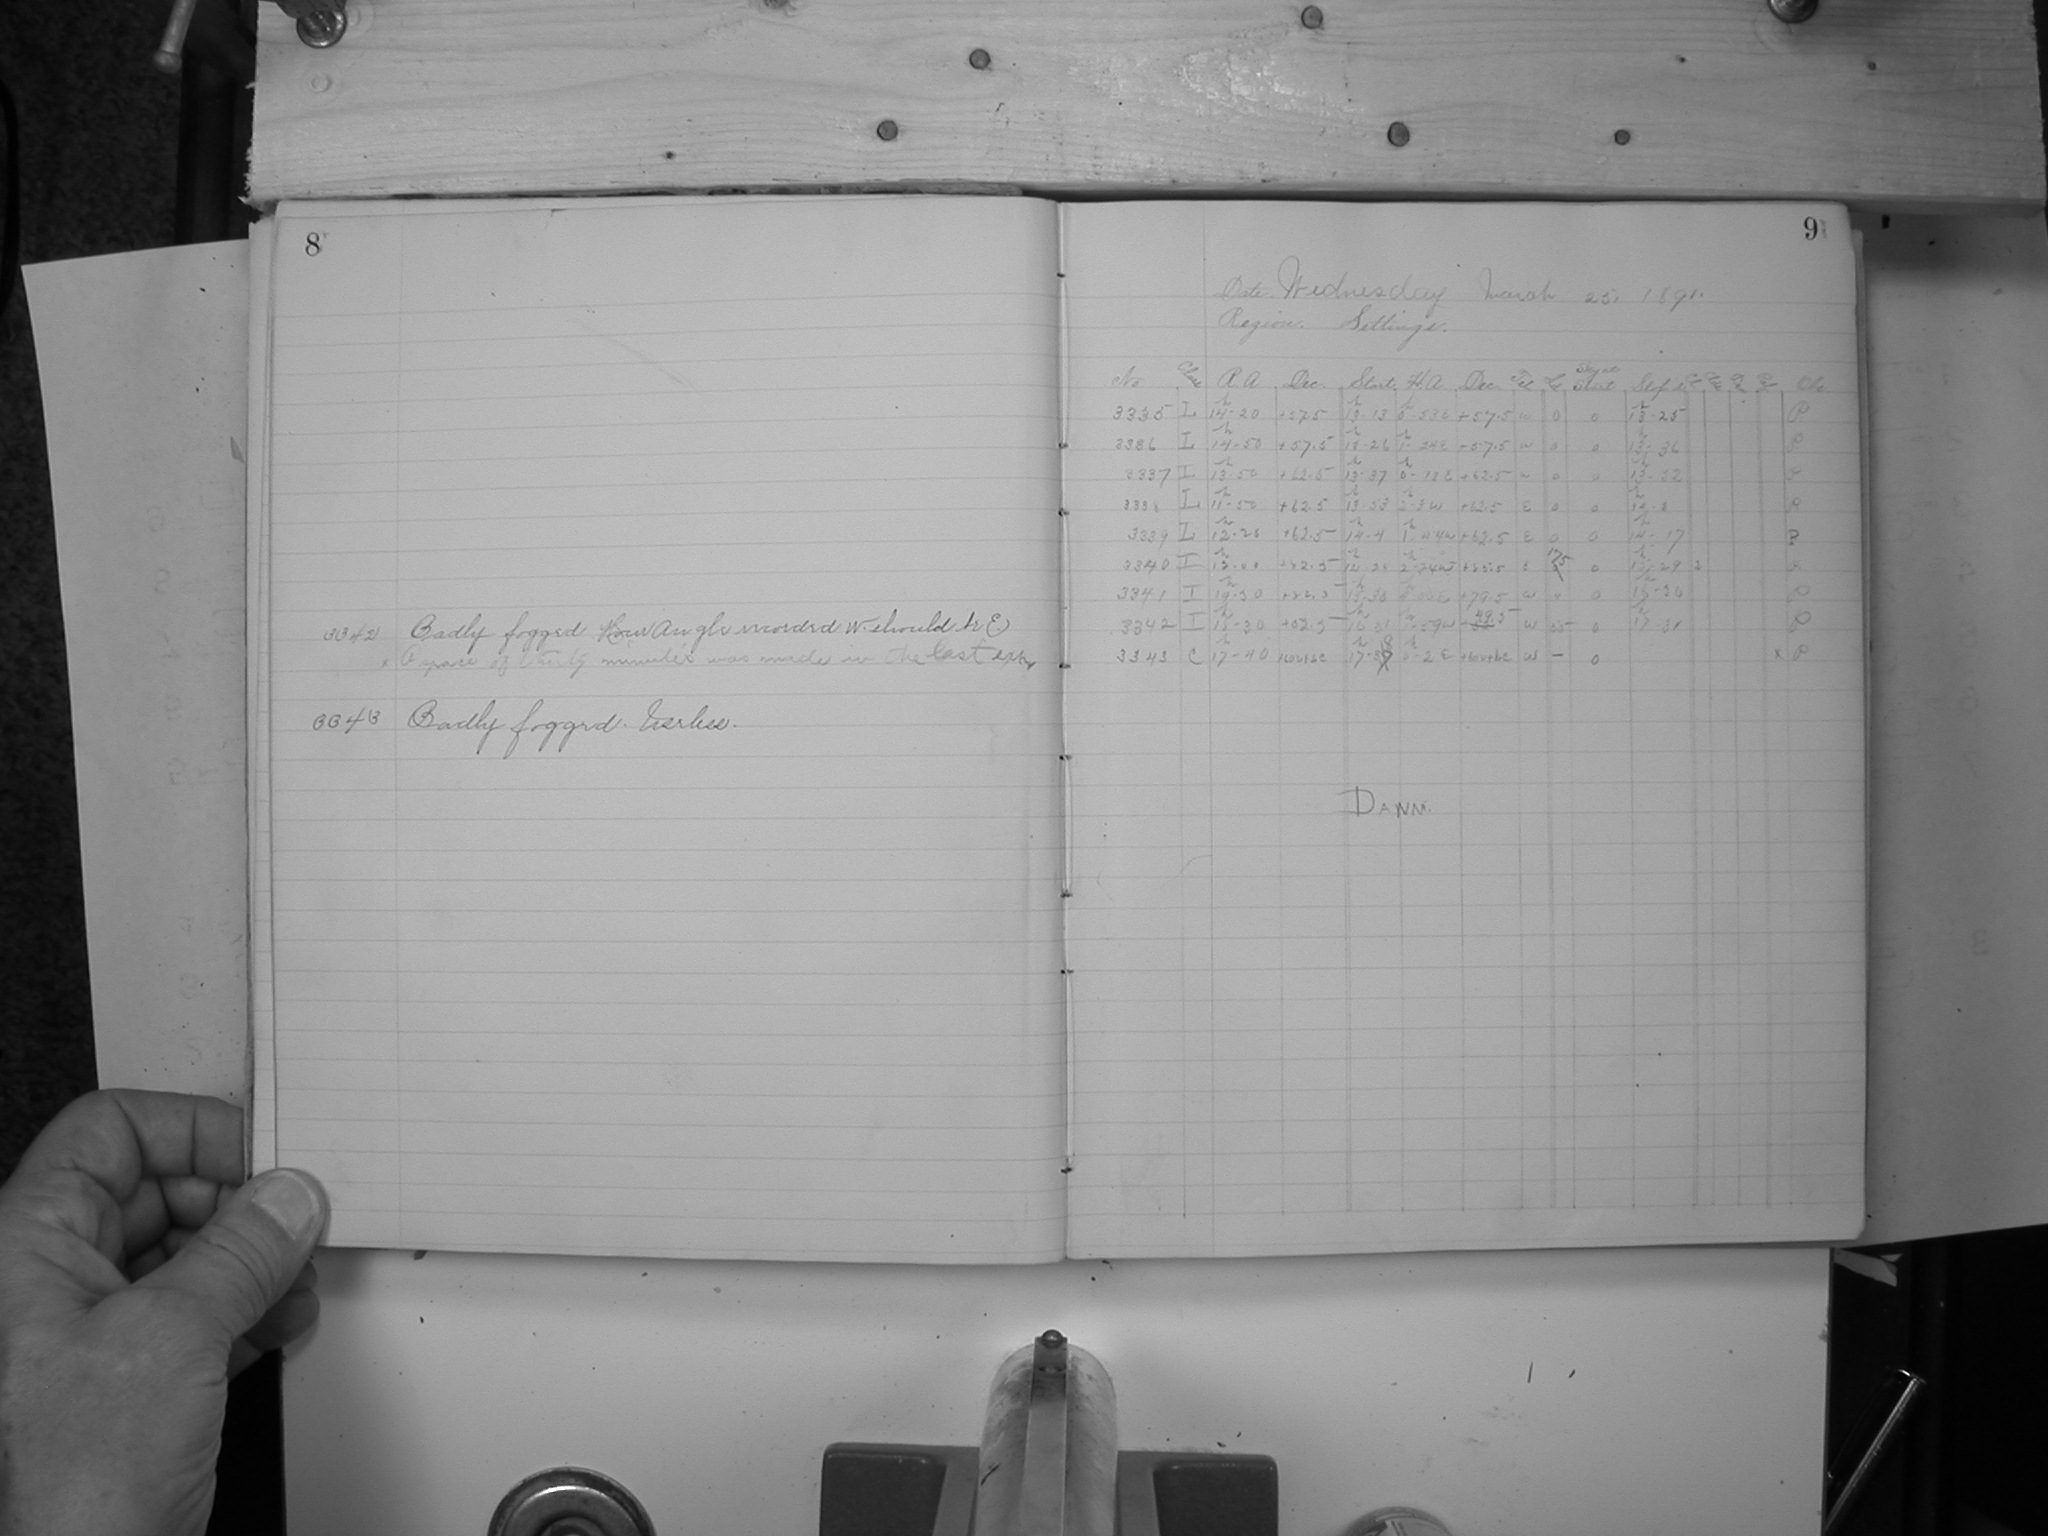 8
3342 Badly fogged Hour Angle recorded W. should be E.
x A space of thirty minutes was made in the last exp.
3343 Badly fogged. Useless.
9
Date. Wednesday March 25, 1891.
Region. Settings.
No Class R.A Dec. Start H.A Dec. Start Stop Obs.
3335 L 14-20 +57.5 13-13 0-53E +57.5 w 0 0 13-25 P
3336 L 14-50 +57.5 13-26 1-24E +57.5 w 0 0 13-36 P
3337 L 13-50 +62.5 13-37 0-13E +62.5 w 0 0 13-52 P
3338 L 11-50 +62.5 13-53 2-3W +62.5 E 0 0 14-3 P
3339 L 12-20 +62.5 14-4 1-44W +62.5 E 0 0 14-17 P
3340 I 0
3341 I +79.5 w P
3342 I 49.5 w 0 17-31 P
3343 C 17-40 17-38 0-2E w – 0 x P
DAWN.